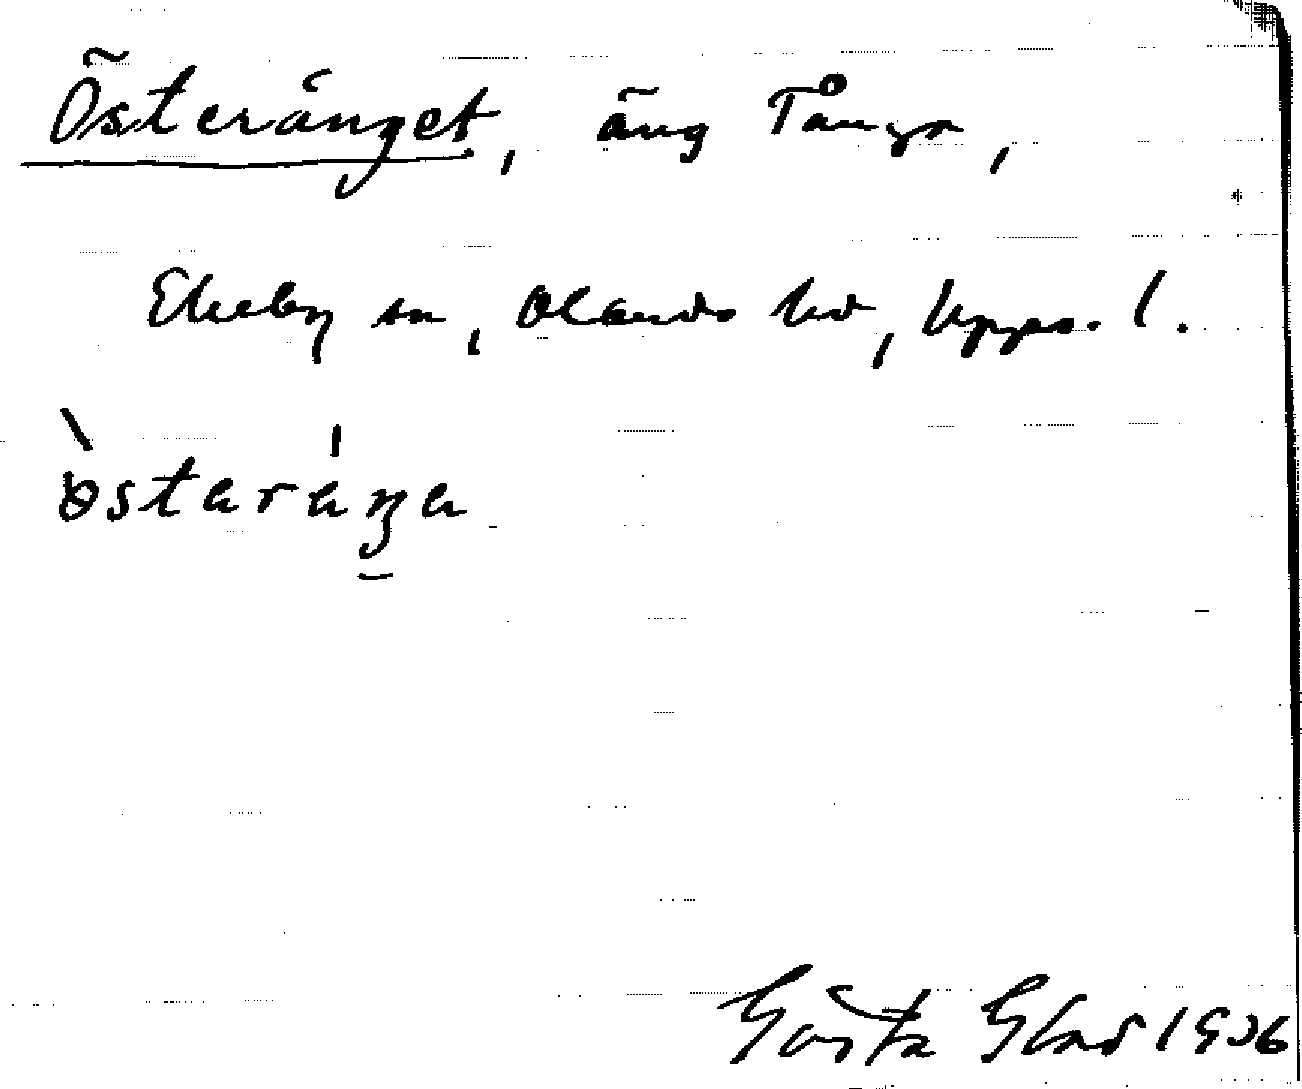 Österänget, äng Tånga,
Ekeby sn, Olands hd, Upps. l.
östaräŋa
Gösta Glad 1936